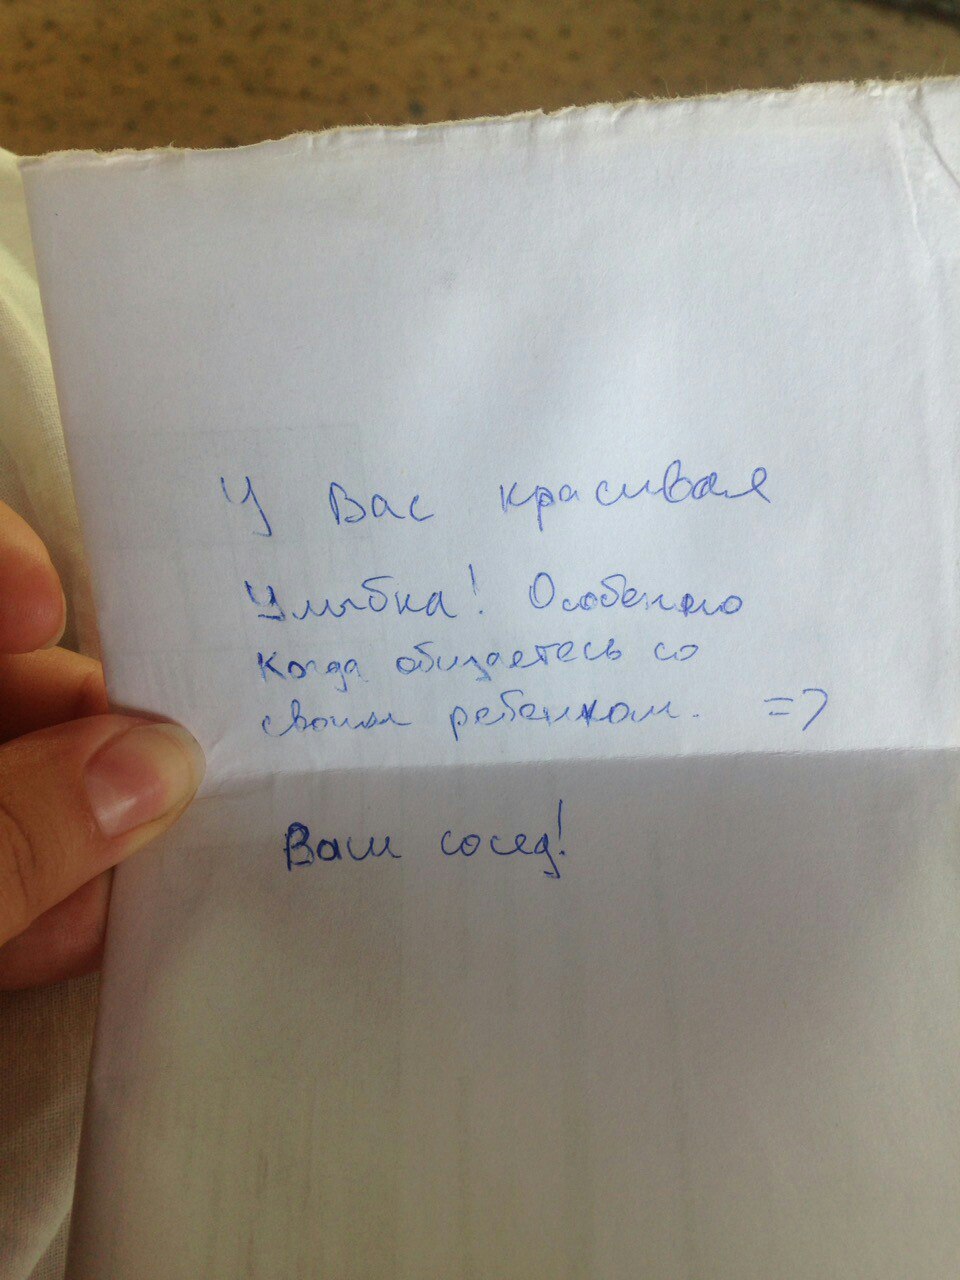 У Вас красивая
Улыбка! Особенно
Когда общаетесь со
своим ребенком. =)
Ваш сосед!